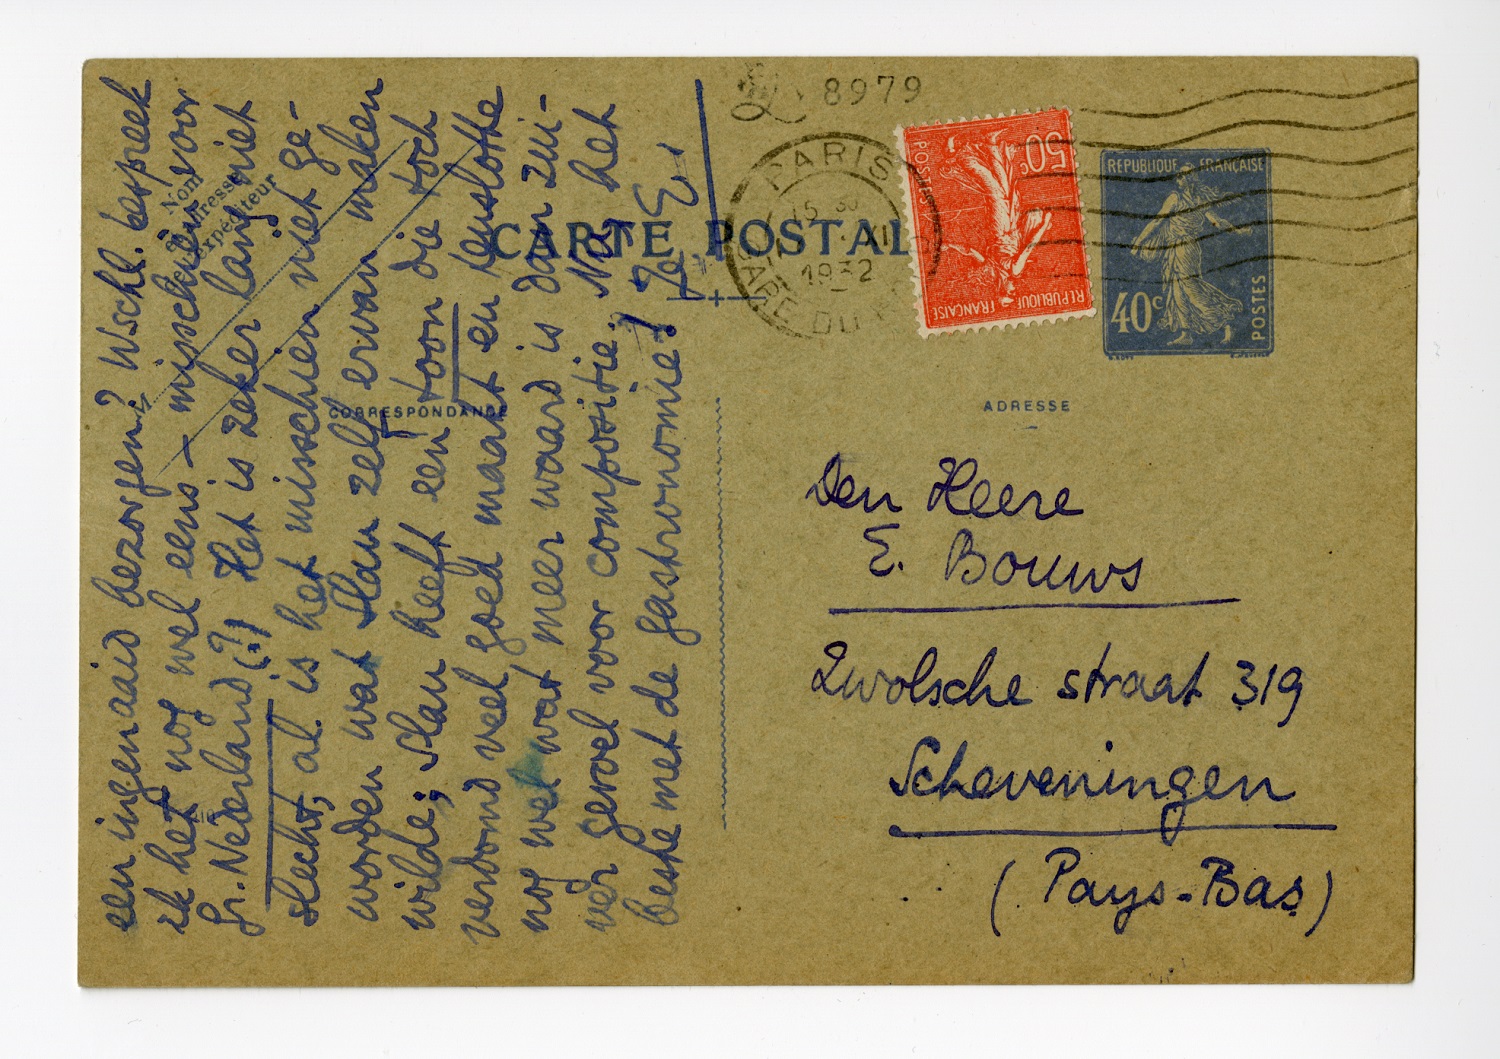 een ingenaaid bezorgen? Wschl. bespreek
ik het nog wel eens – misschien voor
Gr. Nederland (?) Het is zeker lang niet
slecht, al is het misschien niet ge-
worden wat Slau zelf ervan maken
wilde; Slau heeft een toon die toch
verdomd veel goed maakt en tenslotte
nog wel wat meer waard is dan zui-
ver gevoel voor compositie. Nog het
beste met de gastronomie! Je E.
Nom
et adresse
de l'expéditeur
CARTE POSTALE
CORRESPONDANCE
ADRESSE
8979
PARIS
15 30
XI
1932
GARE DU
50c
POSTES
REPUBLIQUE FRANÇAISE
REPUBLIQUE FRANÇAISE
40c
POSTES
Den Heere
E. Bouws
Zwolsche straat 319
Scheveningen
(Pays-Bas)